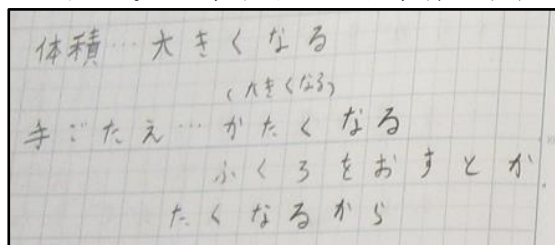 体積…大きくなる
(大きくなる)
手ごたえ…かたくなる
ふくろをおすとか
たくなるから